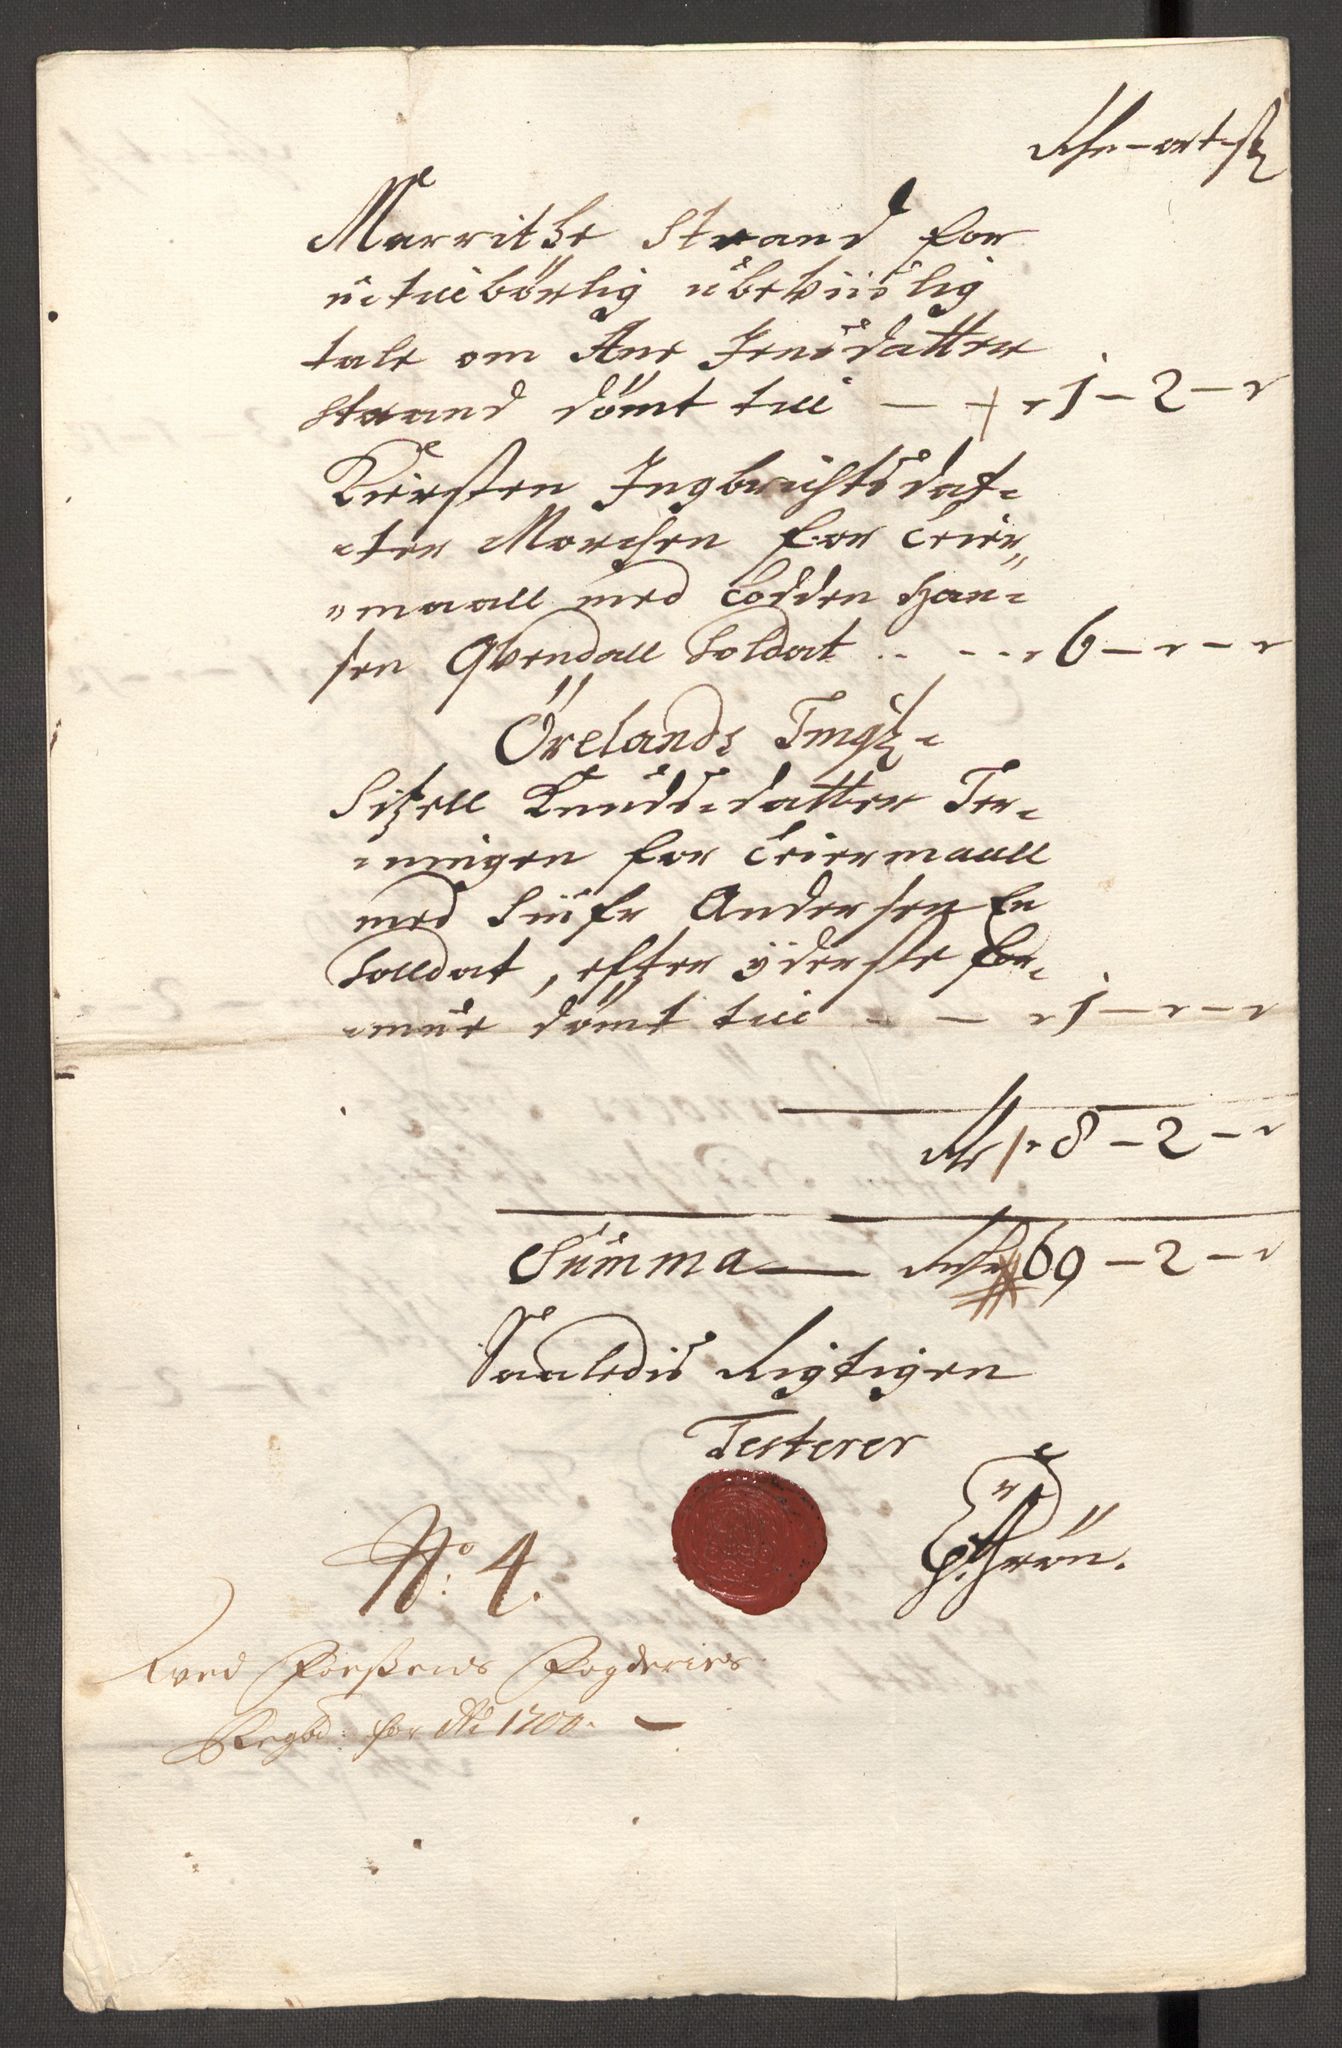 Rdr - ort - sk
Marrithe Strand for
utilbörlig ubeviislig
tale om Ane Jensdatter
Strand dömt till — - 1 - 2 - "
Kiersten Ingbrichtsdat-
-ter Morchen for Leier-
"maall med Lodden Han-
sen Qvendall Soldat .. - - - 6 - " - "
Örelands Tingl:
Sitzell Knuds-datter Ter-
-ningen for Leiermaall
med Siufr Andersen En
Solldat, efter yderste for-
-mue dömt till - — 1 - " - "
Rdr 8 - 2 - "
Summa — Rdr 69 - 2 - "
Saaledis Rigtigen
Testerer
Grön.
No: 4.
Ved Foessens Fogderies
Regbd: for Ao 1700. —